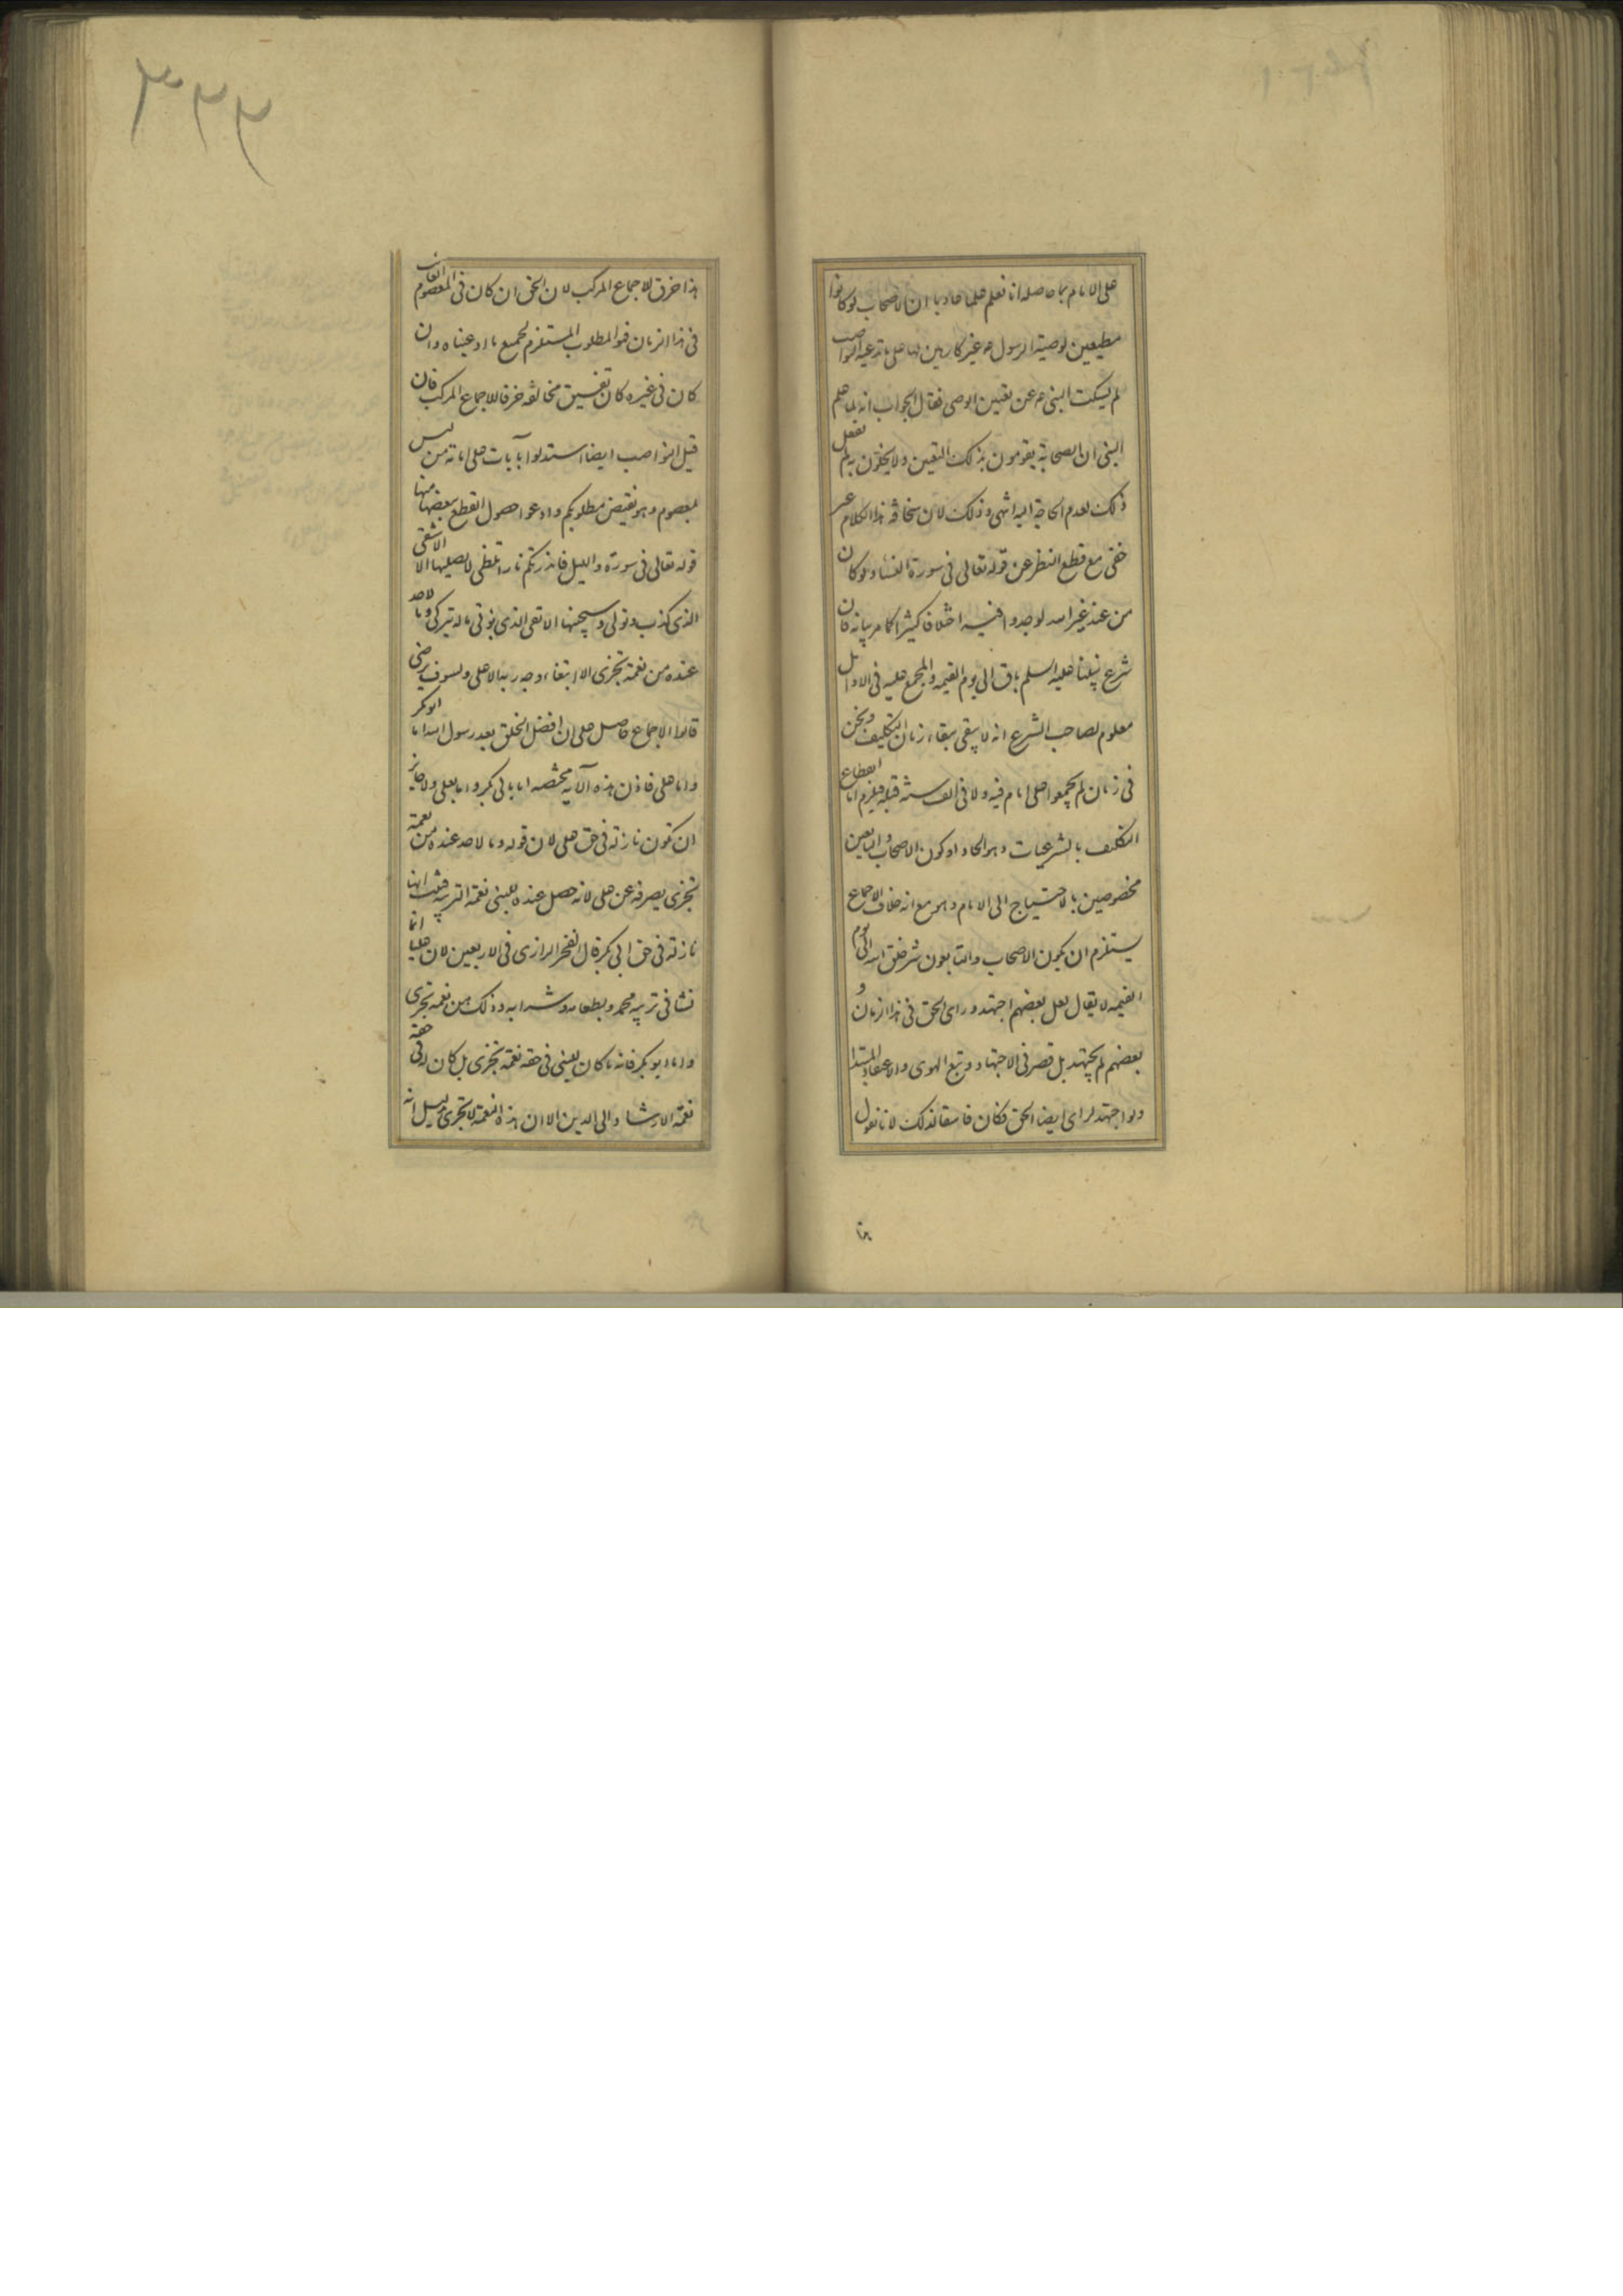 على الامام بما حاصله انا نعلم علما عاديا ان الاصحاب لو كانوا
مطيعين لوصية الرسول ص غير كارهين لها على ما تدعيه النواصب
لم يسكت النبي ص عن تعيين الوصى فقال الجواب انه لما علم
النبي ان الصحابة يقومون بذلك التعين ولا يخلون به لم يفعل
ذلك لعدم الحاجة اليه انتهى وذلك لان سخافة هذا الكلام غير
خفى مع قطع النظر عن قوله تعالى فى سورة النساء ولو كان
من عند غير الله لوجدوا فيه اختلافا كثيرا كما مر بيانه فان
شرع نبينا عليه السلم باق الى يوم القيمه والمجمع عليه فى الاوايل
معلوم لصاحب الشرع انه لا يبقى ببقاء زمان التكليف ونحن
فى زمان لم يجمعوا على امام فيه ولا فى الف سنة قبله فيلزم اما انقطاع
التكليف بالشرعيات وهو الحاد او كون الاصحاب والتابعين
مخصوصين بالاحتياج الى الامام وهو مع انه خلاف الاجماع
يستلزم ان يكون الاصحاب والتابعون شر خلق الله الى يوم
القيمه لا يقال لعل بعضهم اجتهد وراى الحق فى هذا الزمان و
بعضهم لم يجتهد بل قصر فى الاجتهاد وتبع الهوى والاعتقاد المبتدا
ولو اجتهد لراى ايضا الحق فكان فاسقا لذلك لانا نقول
هذا خرق للاجماع المركب لان الحق ان كان فى المعصوم الغائب
فى هذا الزمان فهو المطلوب المستلزم لجميع ما ادعيناه وان
كان فى غيره كان تفسيق مخالفه خرقا للاجماع المركب فان
قيل النواصب ايضا استدلوا بآيات على امامة من ليس
بمعصوم وهو نقيض مطلوبكم وادعوا حصول القطع ببعضها منها
قوله تعالى فى سورة والليل فانذرتكم نارا تلظى لا يصليها الا الاشقى
الذى كذب وتولى وسيجنبها الاتقى الذى يؤتى ماله يتزكى وما لاحد
عنده من نعمة تجزى الا ابتغاء وجه ربه الاعلى ولسوف يرضى
قالوا الاجماع حاصل على ان افضل الخلق بعد رسول الله اما ابو بكر
واما على فاذن هذه الآية مختصه اما بابى بكر واما بعلى ولا جايز
ان تكون نازلة فى حق على لان قوله وما لاحد عنده من نعمة
تجزى يصرفه عن على لانه حصل عنده للنبى نعمة التربيه فثبت انها
نازلة فى حق ابى بكر قال الفخر الرازى فى الاربعين لان عليا انما
نشا فى تربية محمد وبطعامه وشرابه وذلك من نعمة تجزى
واما ابو بكر فانه ما كان للنبى فى حقه نعمة تجزى بل كان له فى حقه
نعمة الارشاد الى الدين الا ان هذه النعمة لا تجزى بدليل انه